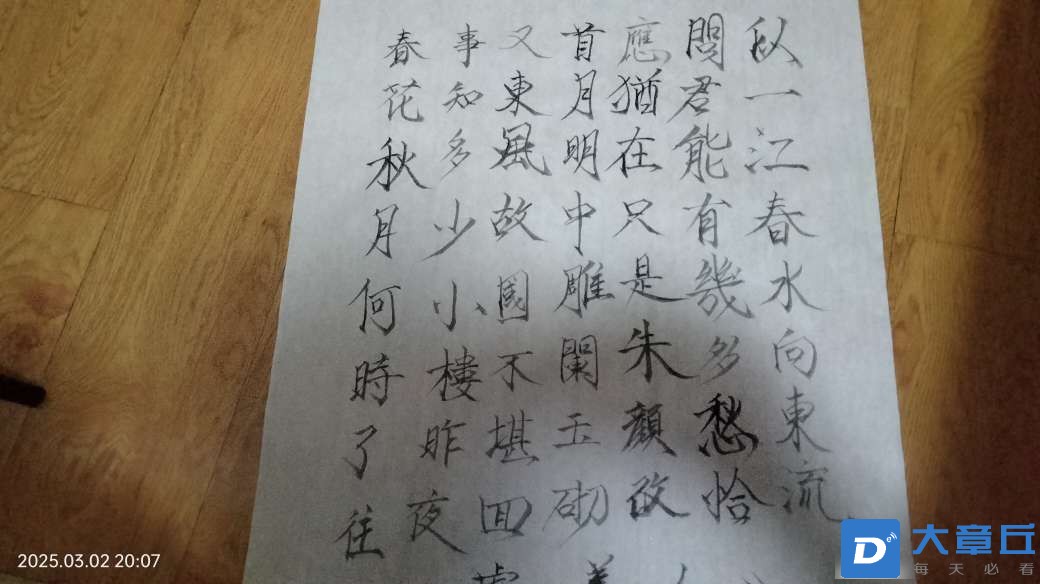 春花秋月何時了往
事知多少小樓昨夜
又東風故國不堪回
首月明中雕闌玉砌
應猶在只是朱顏改
問君能有幾多愁恰
似一江春水向東流
2025.03.02 20:07
大章丘
每天必看